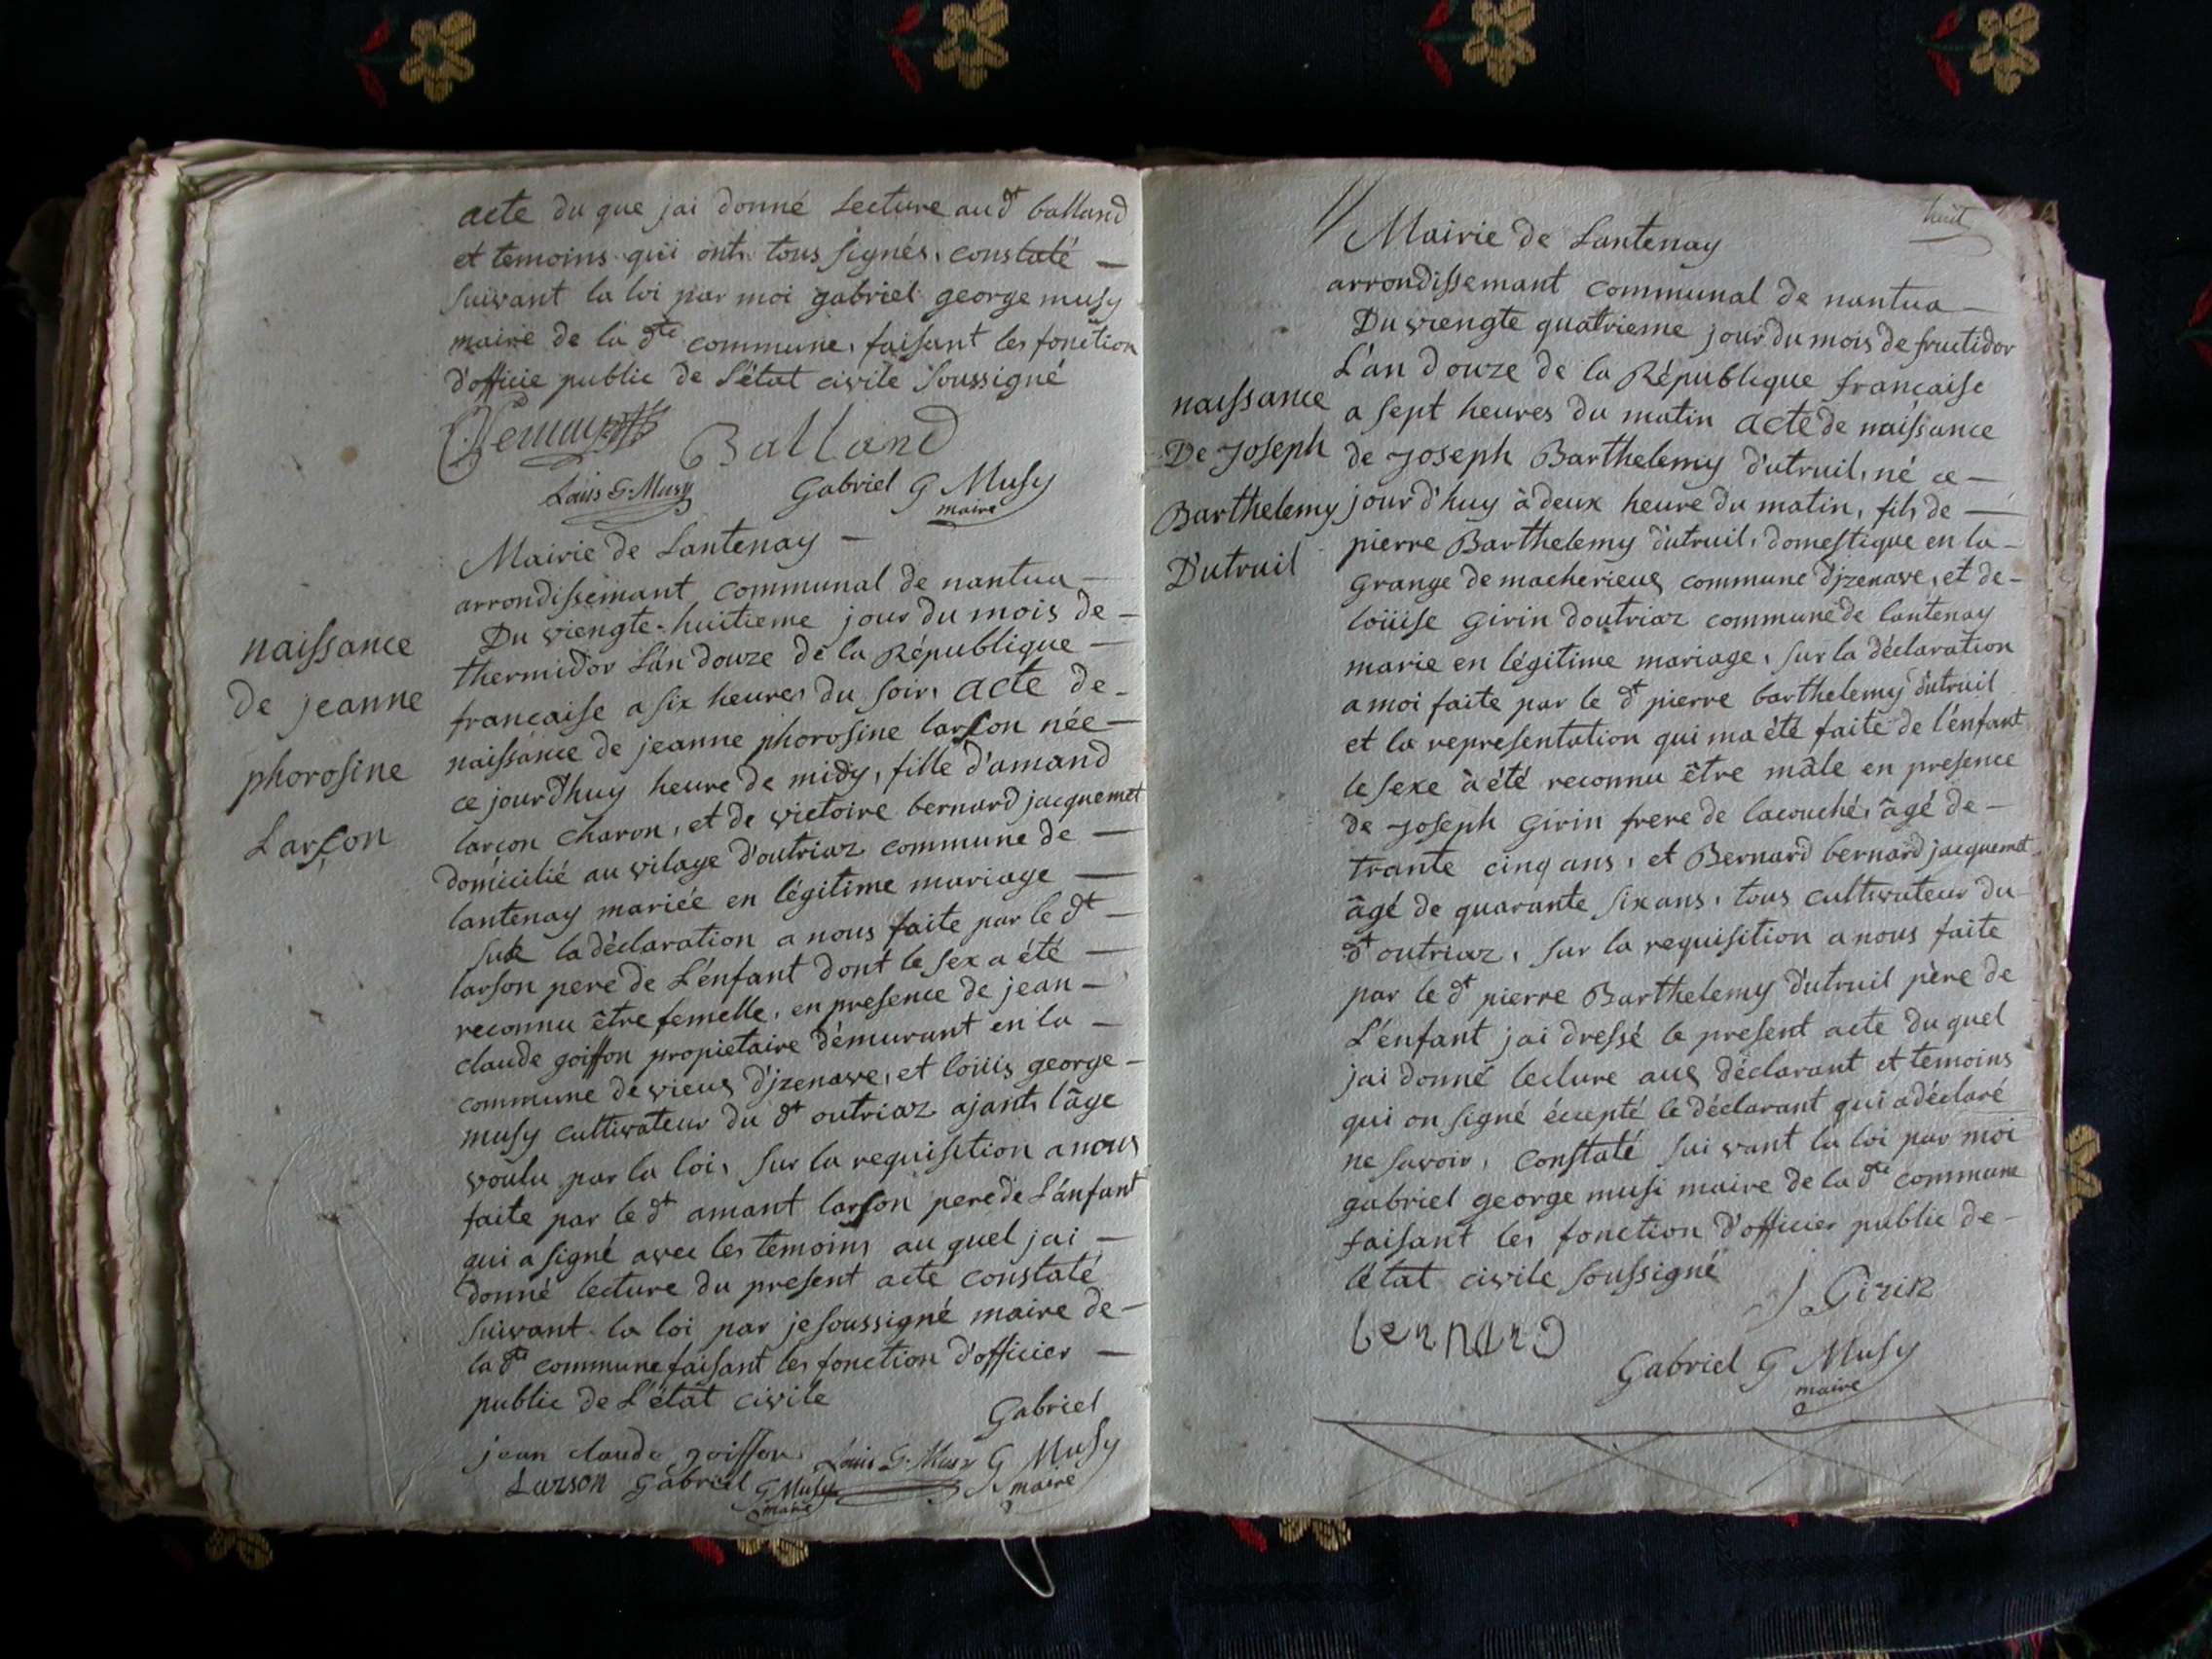 acte du que jai donné Lecture aud.t balland
et temoins qui onts tous signés, constaté —
suivant la loi par moi gabriel george musy
maire de la d.te commune, faisant les fonction
d'officie public de L'état civile soussigné
Balland
Louis G. Musy Gabriel G Musy
maire
Mairie de Lantenay —
arrondissemant communal de nantua —
Du viengte-huitieme jour du mois de —
thermidor L'an douze de la République —
francaise a six heures du soir, acte de —
naissance de jeanne phorosine larson née —
ce jourd'huy heure de midy, fille d'amand
larcon charon, et de victoire bernard jacquemet
domicilié au vilage d'outriaz commune de —
lantenay mariée en légitime mariage —
sur la déclaration a nous faite par le d.t —
larson pere de L'enfant dont le sex a été —
reconnu être femelle, en presence de jean —
claude goiffon propietaire démurant en la —
commune de vieux d'jzenave, et loüis george —
musy cultivateur du d.t outriaz ajants lâge
voulu par la loi, sur la requisition a nous
faite par le d.t amant larson pere de L'anfant
qui a signé avec les temoins au quel jai —
donné lecture du present acte constaté
suivant la loi par je soussigné maire de —
la d.te commune faisant les fonction d'officier —
public de L'état civile
jean claude goiffon Louis G. Musy Gabriel G Musy
maire
Larson Gabriel G Musy
maire
naissance
de jeanne
phorosine
Larçon
huit
Mairie de Lantenay
arrondissemant communal de nantua —
Du viengte quatrieme jour du mois de fructidor
L'an douze de la République francaise
a sept heures du matin acte de naissance
de Joseph Barthelemy d'utruil, né ce —
jour d'huy à deux heure du matin, fils de —
pierre Barthelemy dutruil, domestique en la —
grange de macherieux commune d'jzenave, et de —
loüise Girin doutriaz commune de lantenay
marie en légitime mariage, sur la déclaration
a moi faite par le d.t pierre barthelemy dutruil
et la representation qui ma été faite de l'énfant
le sexe à été reconnu être mâle en presence
de Joseph Girin frere de lacouché, âgé de —
trante cinq ans, et Bernard bernard jacquemet
âgé de quarante six ans, tous cultivateur du
d.t outriaz, sur la requisition a nous faite
par le d.t pierre Barthelemy dutruil père de
L'énfant jai dressé le present acte du quel
jai donné lecture aux déclarant et temoins
qui on signé écepté le déclarant qui a déclaré
ne savoir, constaté sui vant la loi par moi
gabriel george musi maire de la d.te commune
faisant les fonction d'officier public de —
létat civile soussigné
J Girin
bernard
Gabriel G Musy
maire
naissance
De Joseph
Barthelemy
D'utruil